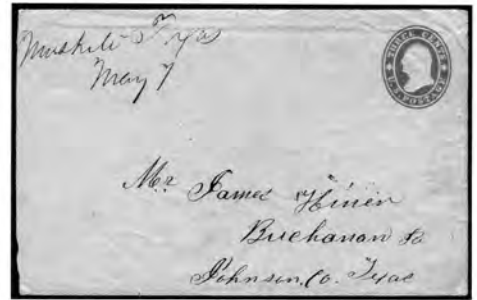 Muskite Texas
May 7
THREE CENTS
U.S. POSTAGE
Mr James
Buchanan Po
Johnson, Co. Texas